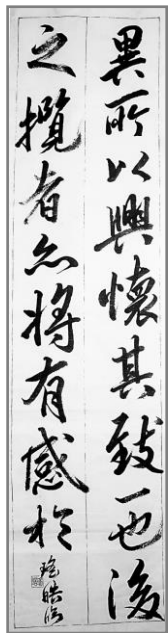 異所以興懷其致一也後
之攬者亦將有感於